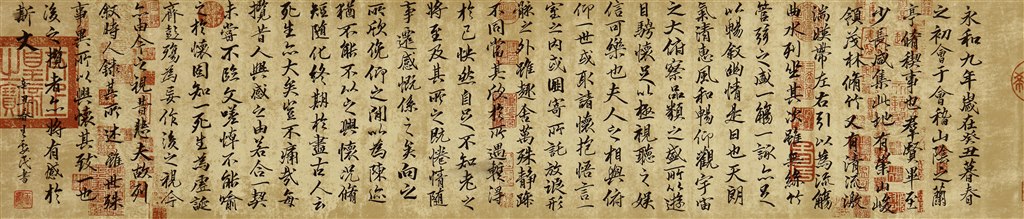 永和九年歲在癸丑暮春
之初會于會稽山陰之蘭
亭脩稧事也羣賢畢至
少長咸集此地有崇山峻
領茂林脩竹又有清流激
湍暎帶左右引以為流觴
曲水列坐其次雖無絲竹
管弦之盛一觴一詠亦足
以暢敘幽情是日也天朗
氣清惠風和暢仰觀宇宙
之大俯察品類之盛所以遊
目騁懷足以極視聽之娛
信可樂也夫人之相與俯
仰一世或取諸懷抱悟言一
室之內或因寄所託放浪形
骸之外雖趣舍萬殊靜躁
不同當其欣於所遇暫得
於己快然自足不知老之
將至及其所之既惓情隨
事遷感慨係之矣向之
所欣俛仰之閒以為陳迹
猶不能不以之興懷況脩
短隨化終期於盡古人云
死生亦大矣豈不痛哉每
攬昔人興感之由若合一契
未嘗不臨文嗟悼不能喻
之於懷固知一死生為虛誕
齊彭殤為妄作後之視今
亦由今之視昔悲夫故列
敘時人錄其所述雖世殊
事異所以興懷其致一也
後之攬者亦將有感於
斯文